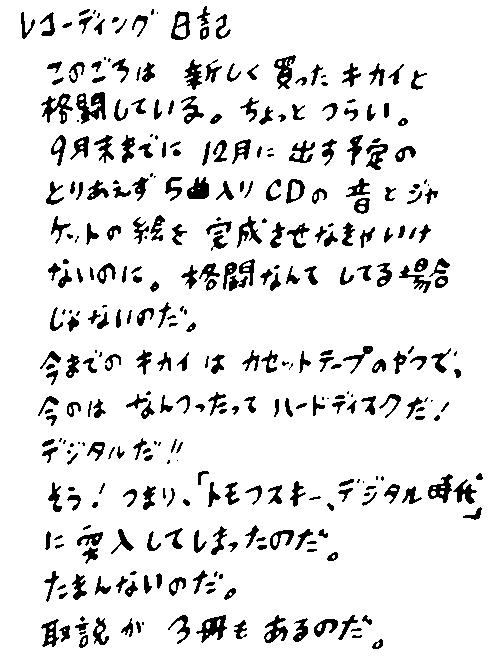 レコーディング 日記
このごろは 新しく買ったキカイと
格闘している。ちょっと つらい。
9月末までに 12月に 出す予定の
とりあえず 5曲入り CDの 音とジャ
ケットの絵を 完成させなきゃいけ
ないのに。格闘なんて してる場合
じゃないのだ。
今までの キカイは カセットテープのやつで、
今のは なんつったって ハードディスクだ!
デジタルだ!!
そう! つまり、「トモフスキー、デジタル時代」
に 突入してしまったのだ。
たまんないのだ。
取説が 3冊も あるのだ。